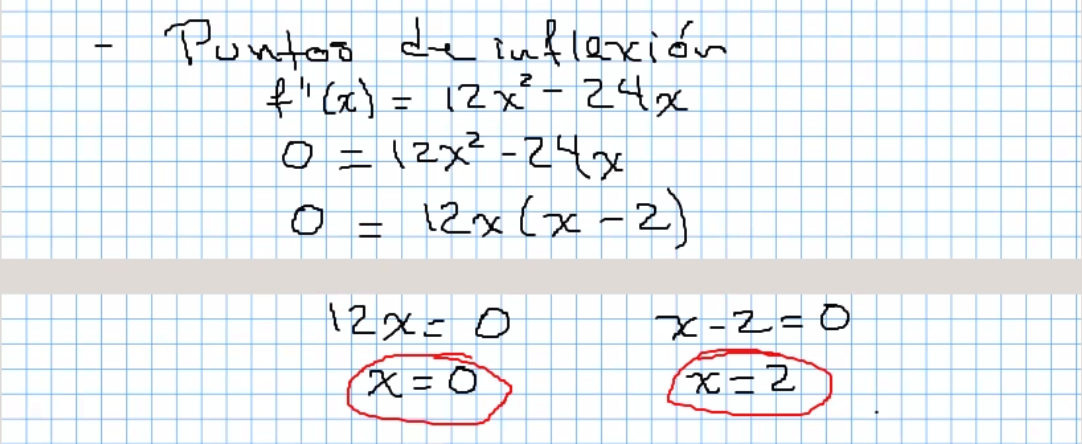 - Puntos de inflexión
f''(x) = 12x² - 24x
0 = 12x² - 24x
0 = 12x(x - 2)
12x = 0 x - 2 = 0
x = 0 x = 2